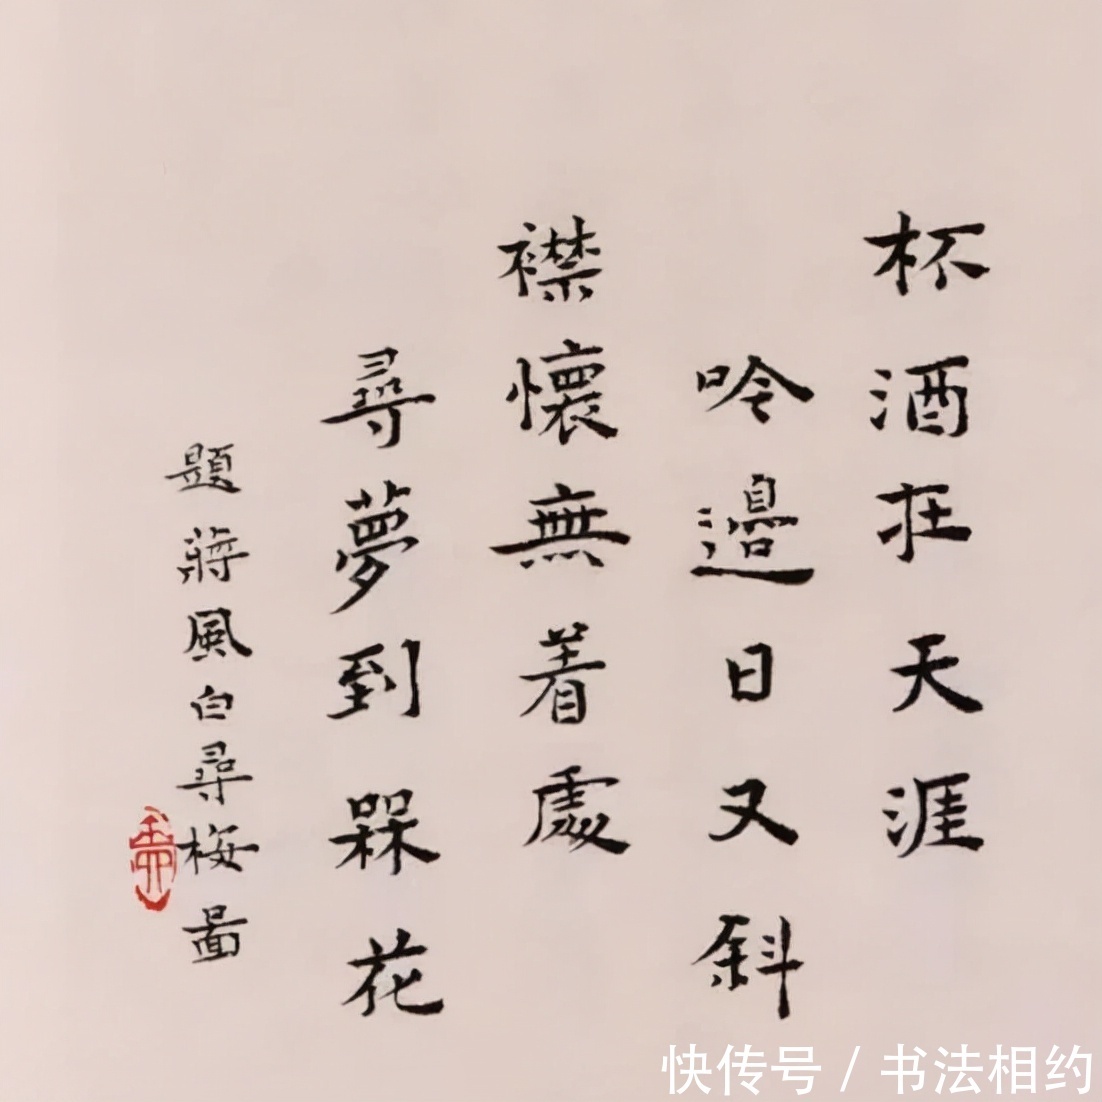 杯酒在天涯
吟邊日又斜
襟懷無着處
尋夢到槑花
題蔣風白尋梅圖
快传号 / 书法相约